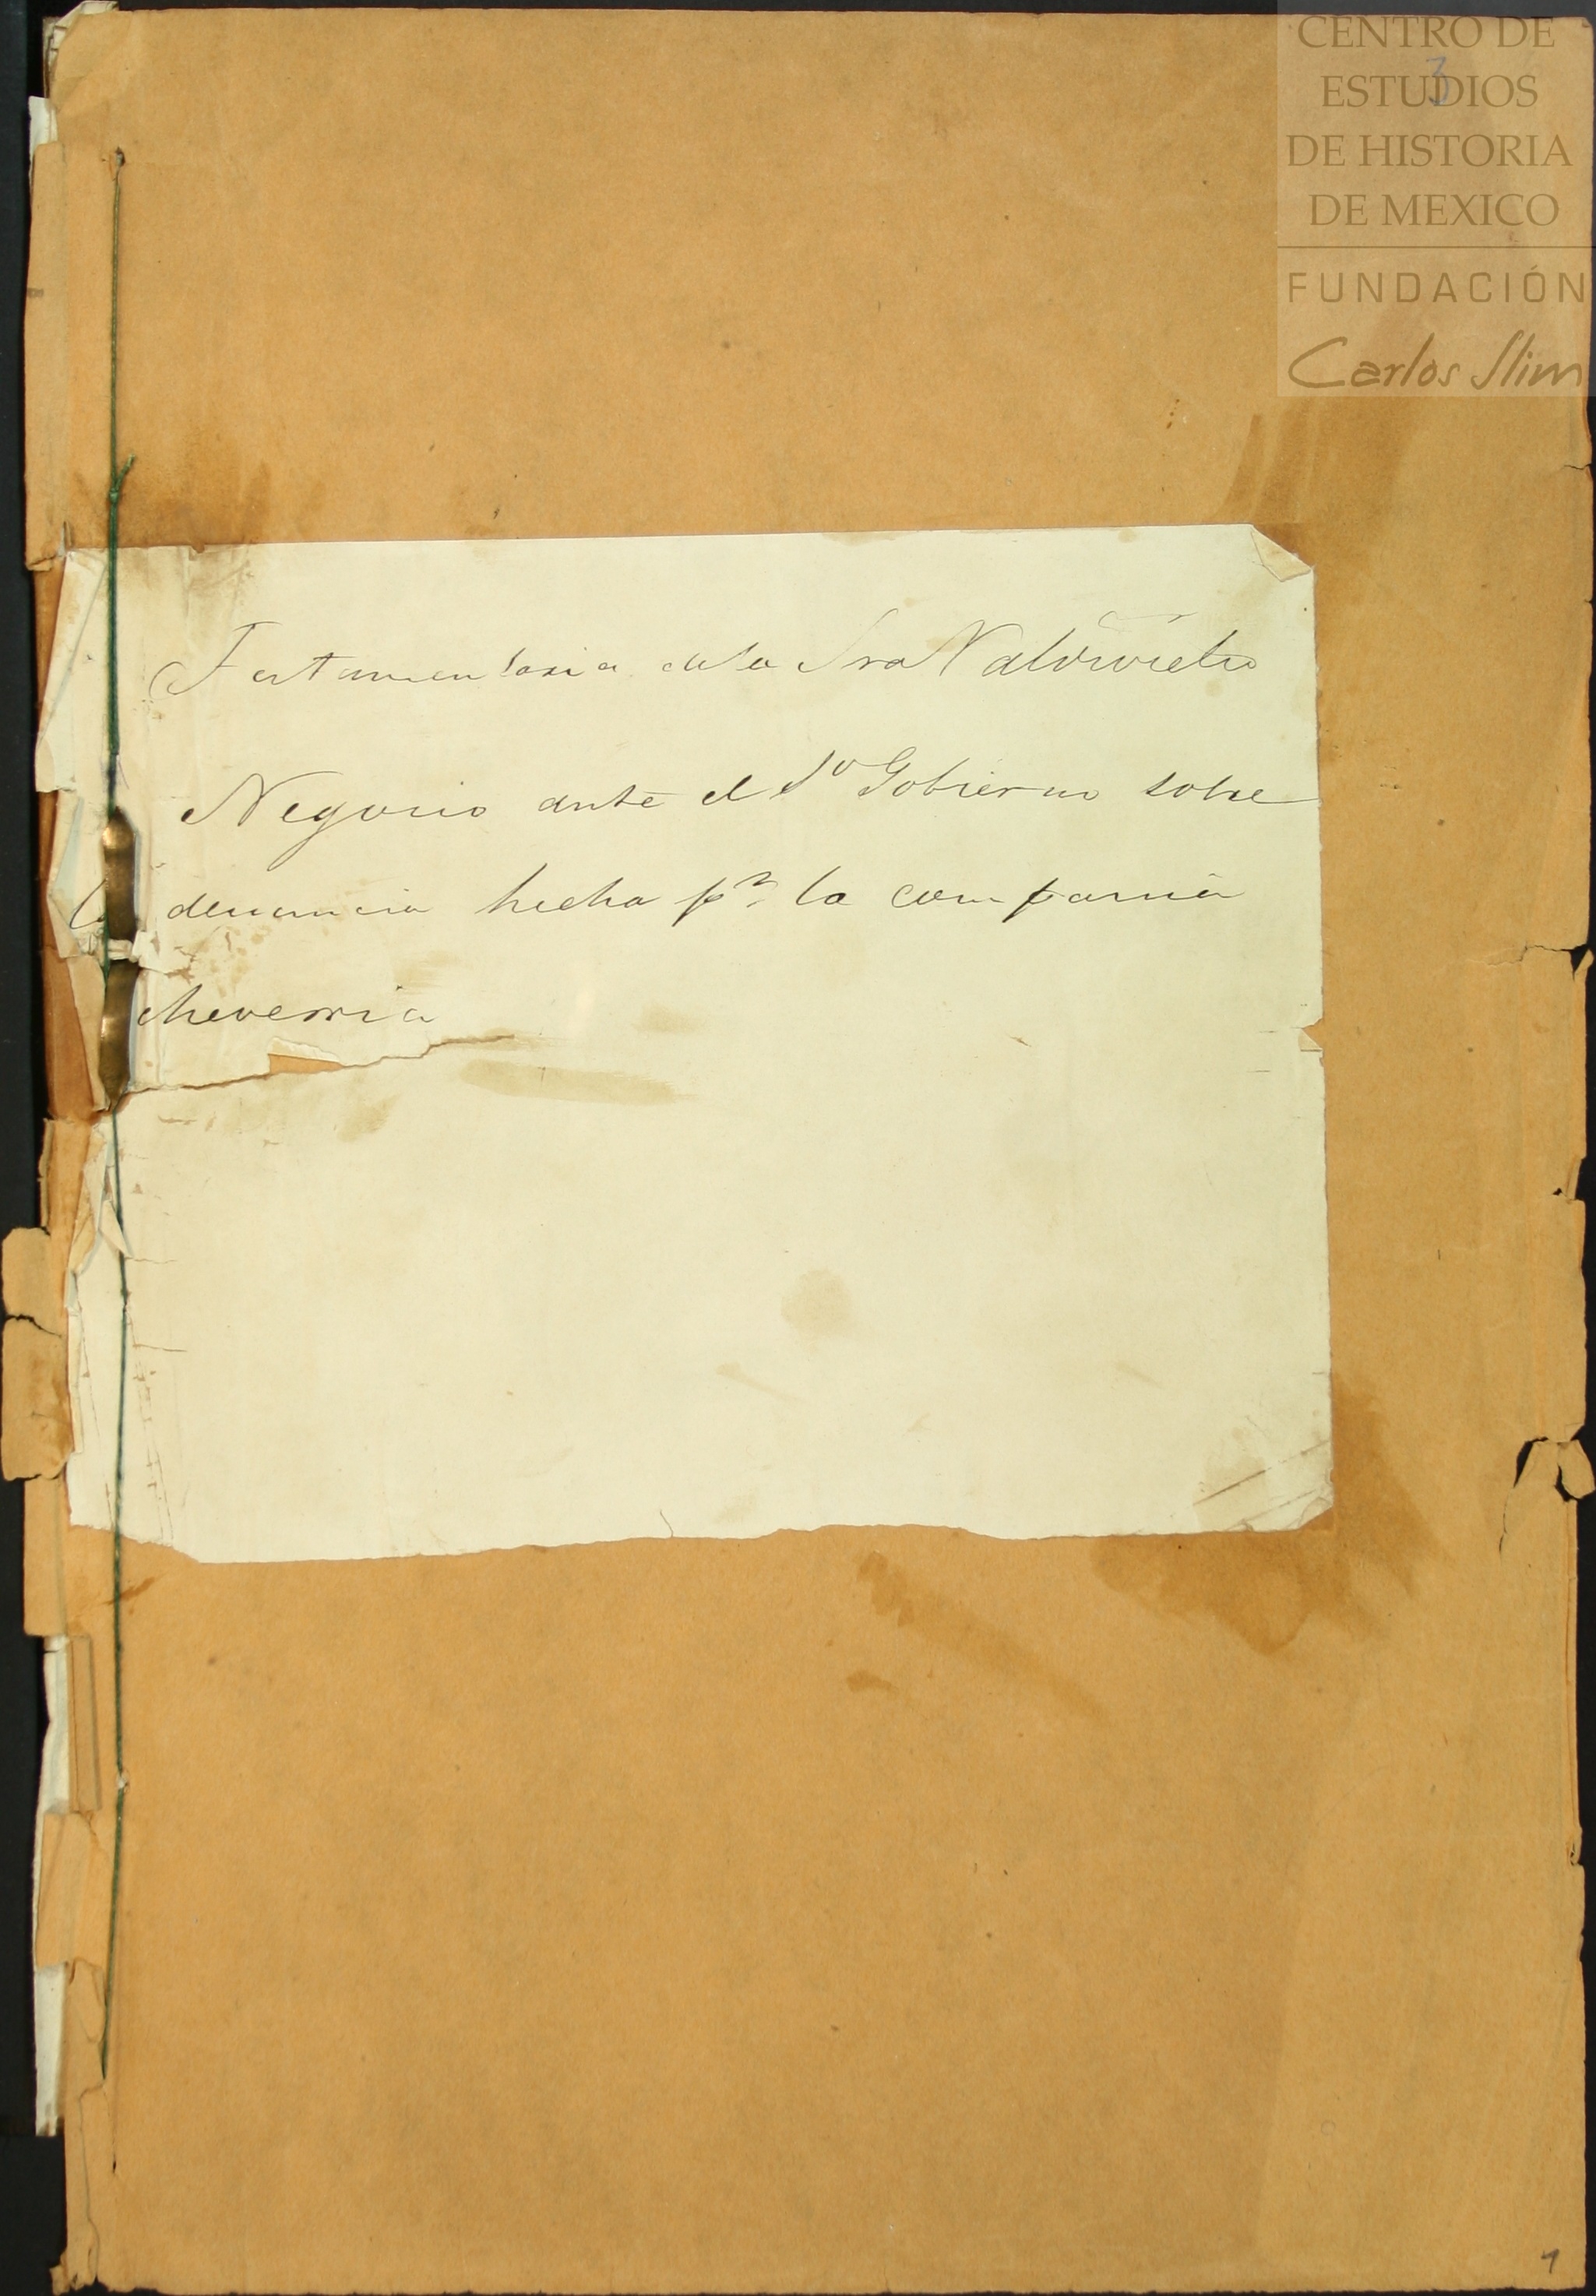 CENTRO DE
ESTUDIOS
DE HISTORIA
DE MEXICO
FUNDACIÓN
Carlos Slim
3
Testamentaria de la Sra Valdivielso
Negocio ante el So Gobierno sobre
la denuncia hecha pr. la compania
cheverria
1